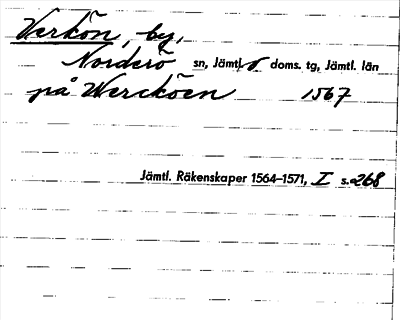 Verkön, by,
Norderö sn, Jämtl. doms. tg, Jämtl. län
på Wercköen 1567
Jämtl. Räkenskaper 1564–1571, I s. 268